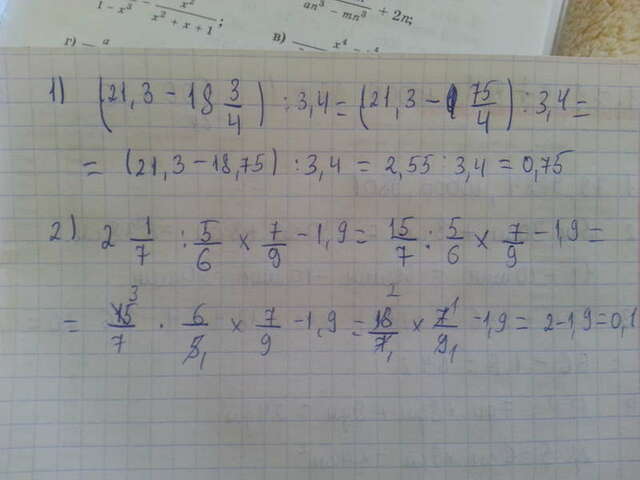 1 - x³ - x²/(x² + x + 1);
an³ - mn³ + 2n;
г) - a
в) x⁴
1) (21,3 - 18 3/4) : 3,4 = (21,3 - 75/4) : 3,4 =
= (21,3 - 18,75) : 3,4 = 2,55 : 3,4 = 0,75
2) 2 1/7 : 5/6 × 7/9 - 1,9 = 15/7 : 5/6 × 7/9 - 1,9 =
= 15³/7 · 6/5₁ × 7/9 - 1,9 = 18²/7₁ × 7¹/9₁ - 1,9 = 2 - 1,9 = 0,1